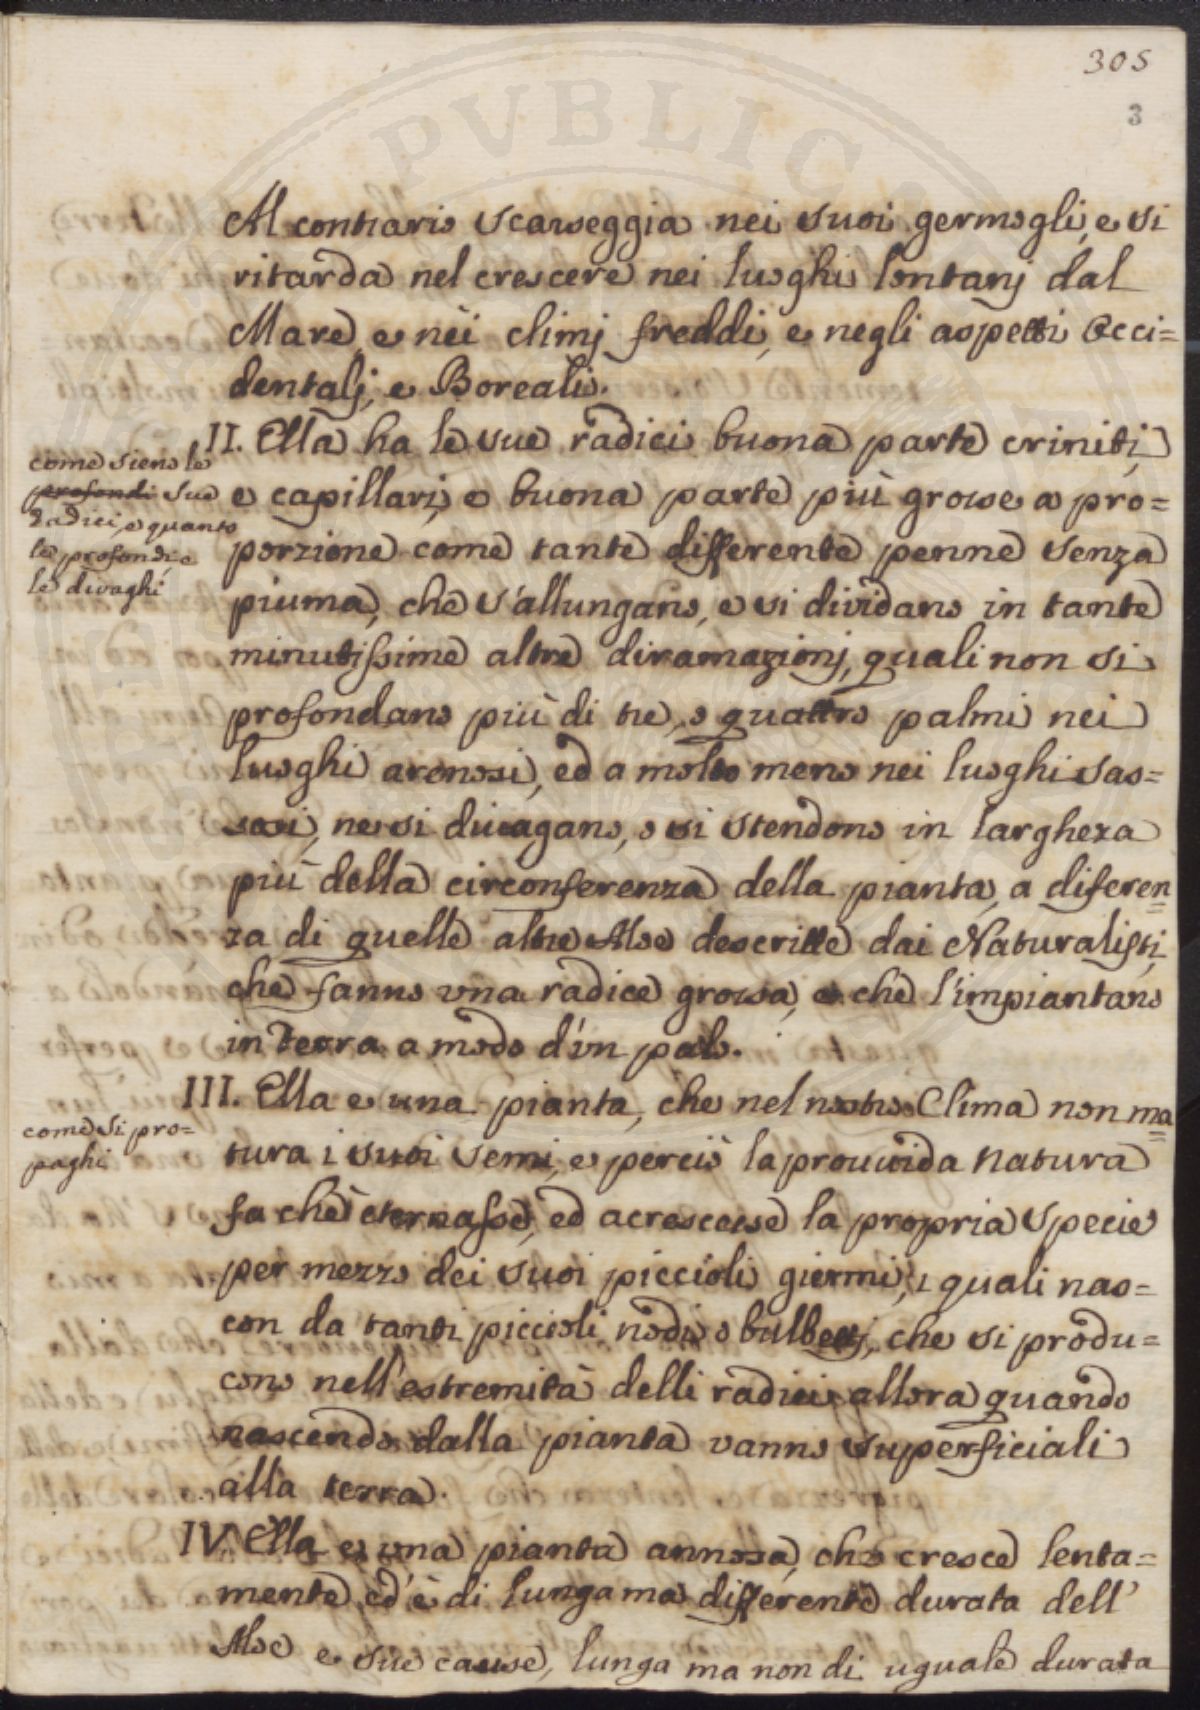 305
3
Al contrario scarseggia nei suoi germogli, e si
ritarda nel crescere nei luoghi lontanj dal
Mare, e nèi climj freddi, e negli aspetti Occi=
dentalj, e Boreali.
II. Ella ha le sue radici buona parte criniti,
e capillari, e buona parte più grosse a pro=
porzione come tante differente penne senza
piuma, che s'allungano, e si dividano in tante
minutissime altre diramazionj, quali non si
profondano più di tre, o quattro palmi nei
luoghi arenosi, ed a molto meno nei luoghi sas=
sosi, ne si divagano, o si stendono in largheza
più della circonferenza della pianta, a diferen=
za di quelle altre Aloe descritte dai Naturalisti,
che fanno una radice grossa, e che l'impiantano
in Terra a modo d'un palo.
come sieno le
profondi sue
radici, e quanto
le profondi, e
le divaghi
III. Ella e una pianta, che nel nostro Clima non ma=
tura i suoi semi, e perciò la provvida Natura
fa chè eternasse, ed acrescese la propria specie
per mezzo dei suoi piccioli giermi, i quali nas=
con da tanti piccioli nodi o bulbettj, che si produ=
cono nell'estremità delli radici allora quando
nascendo dalla pianta vanno superficiali
alla terra.
come si pro=
paghi
IV. Ella e una pianta annosa, che cresce lenta=
mente, ed è di lunga ma differente durata dell'
Aloe e sue cause, lunga ma non di uguale durata